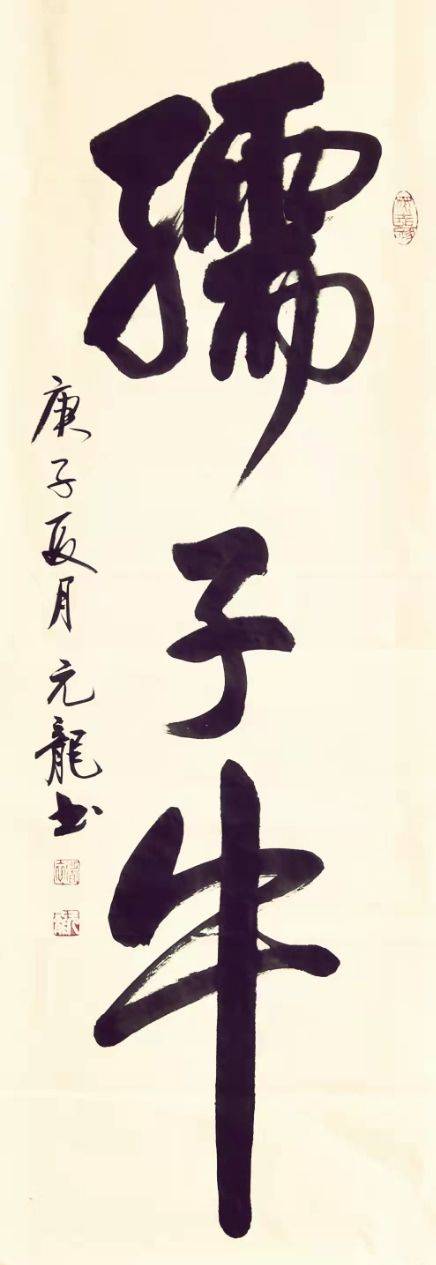 孺子牛
庚子夏月元龍书